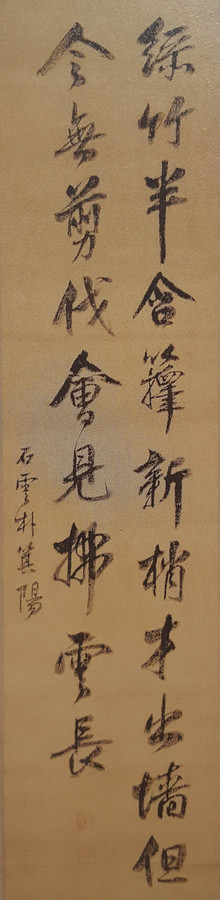 綠竹半含籜新梢才出墻但
令無剪伐會見拂雲長
石雲朴箕陽